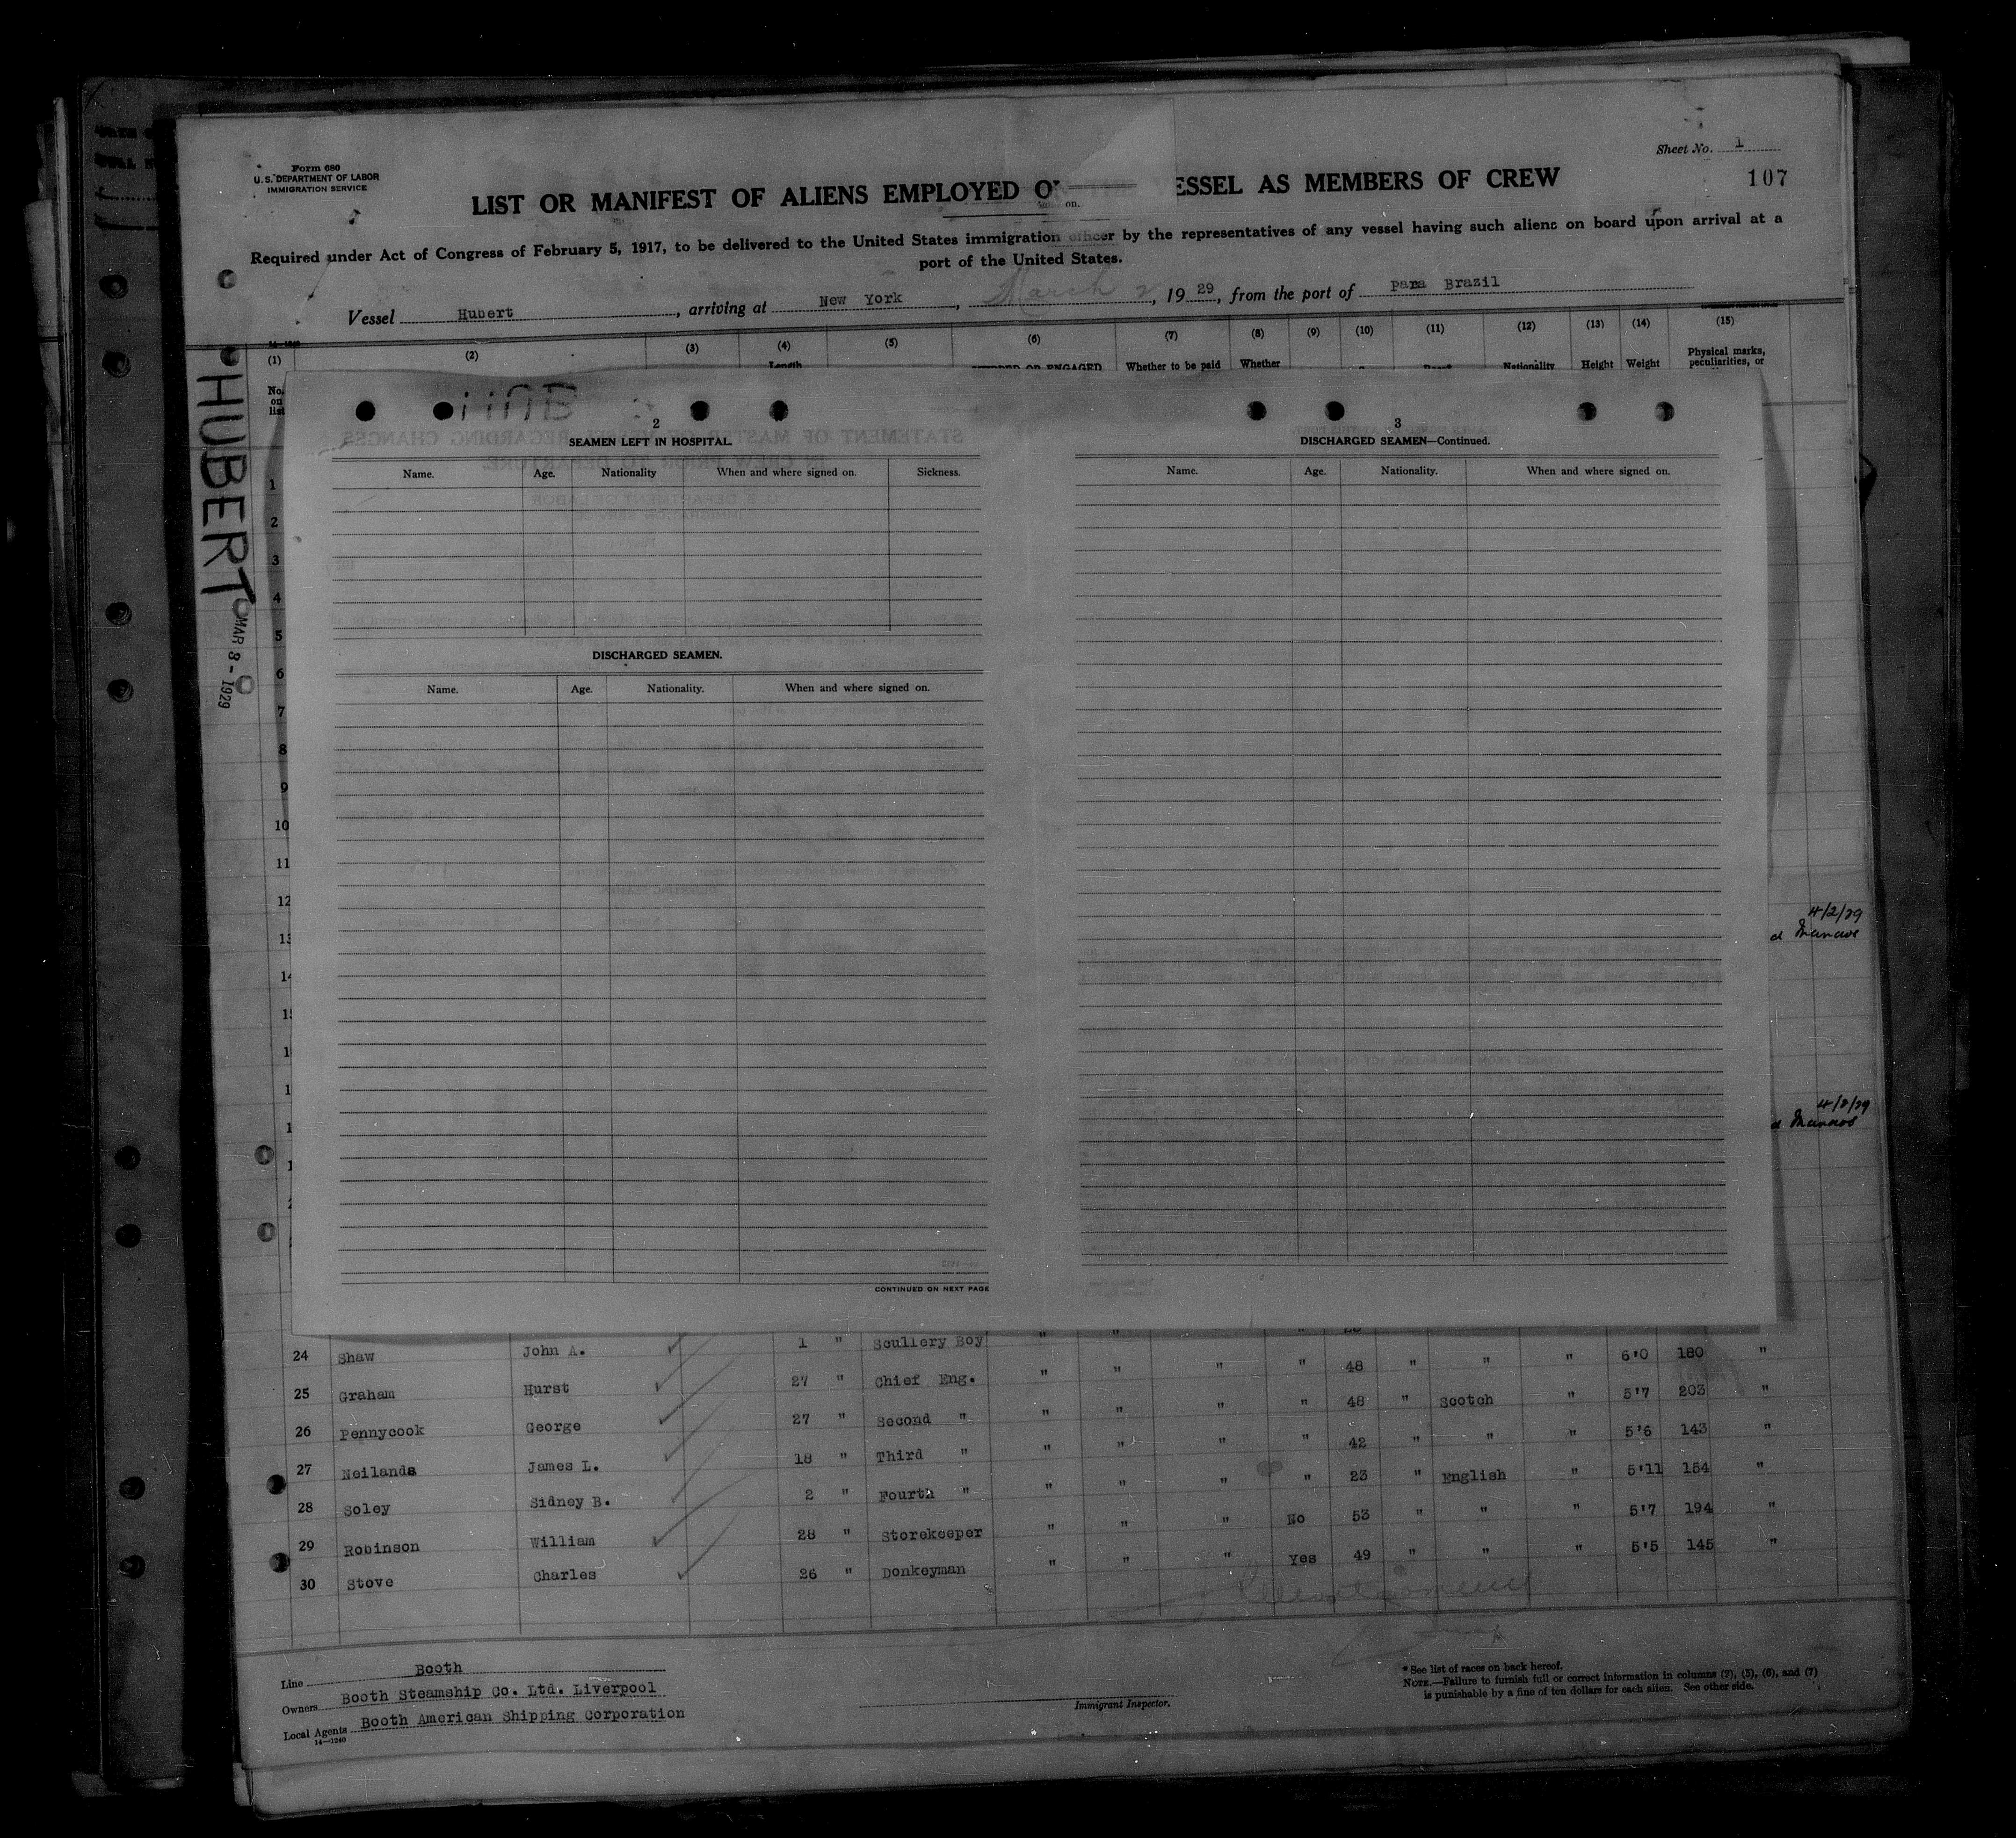 Form 680
U. S. DEPARTMENT OF LABOR
IMMIGRATION SERVICE
Sheet No. 1
107
LIST OR MANIFEST OF ALIENS EMPLOYED O ESSEL AS MEMBERS OF CREW
on.
Required under Act of Congress of February 5, 1917, to be delivered to the United States immigration officer by the representatives of any vessel having such aliens on board upon arrival at a
port of the United States.
Vessel Hubert, arriving at New York, March, 19 29, from the port of Para Brazil
(1) (2) (3) (4) (5) (6) (7) (8) (9) (10) (11) (12) (13) (14) (15)
No. on list
Length
Whether to be paid
Whether
Nationality
Height
Weight
Physical marks, peculiarities, or
HUBERT
MAR 8 - 1929
2
SEAMEN LEFT IN HOSPITAL.
Name. Age. Nationality When and where signed on. Sickness.
DISCHARGED SEAMEN.
Name. Age. Nationality. When and where signed on.
CONTINUED ON NEXT PAGE
3
DISCHARGED SEAMEN—Continued.
Name. Age. Nationality. When and where signed on.
1
2
3
4
5
6
7
8
9
10
11
12
13
14
4/2/29
4/8/29
Manaos
24 Shaw John A. 1 " Scullery Boy " "
25 Graham Hurst 27 " Chief Eng. " " " " 48 " " " 6'0 180 "
26 Pennycook George 27 " Second " " " " " 48 " Scotch " 5'7 203 "
27 Neilands James L. 18 " Third " " " " " 42 " " " 5'6 143 "
28 Soley Sidney B. 2 " Fourth " " " " " 23 " English " 5'11 154 "
29 Robinson William 28 " Storekeeper " " " No 53 " " " 5'7 194 "
30 Stove Charles 26 " Donkeyman " " " Yes 49 " " " 5'5 145 "
Line Booth
Owners Booth Steamship Co. Ltd. Liverpool
Local Agents Booth American Shipping Corporation
14—1240
Immigrant Inspector.
* See list of races on back hereof.
NOTE.—Failure to furnish full or correct information in columns (2), (5), (6), and (7)
is punishable by a fine of ten dollars for each alien. See other side.